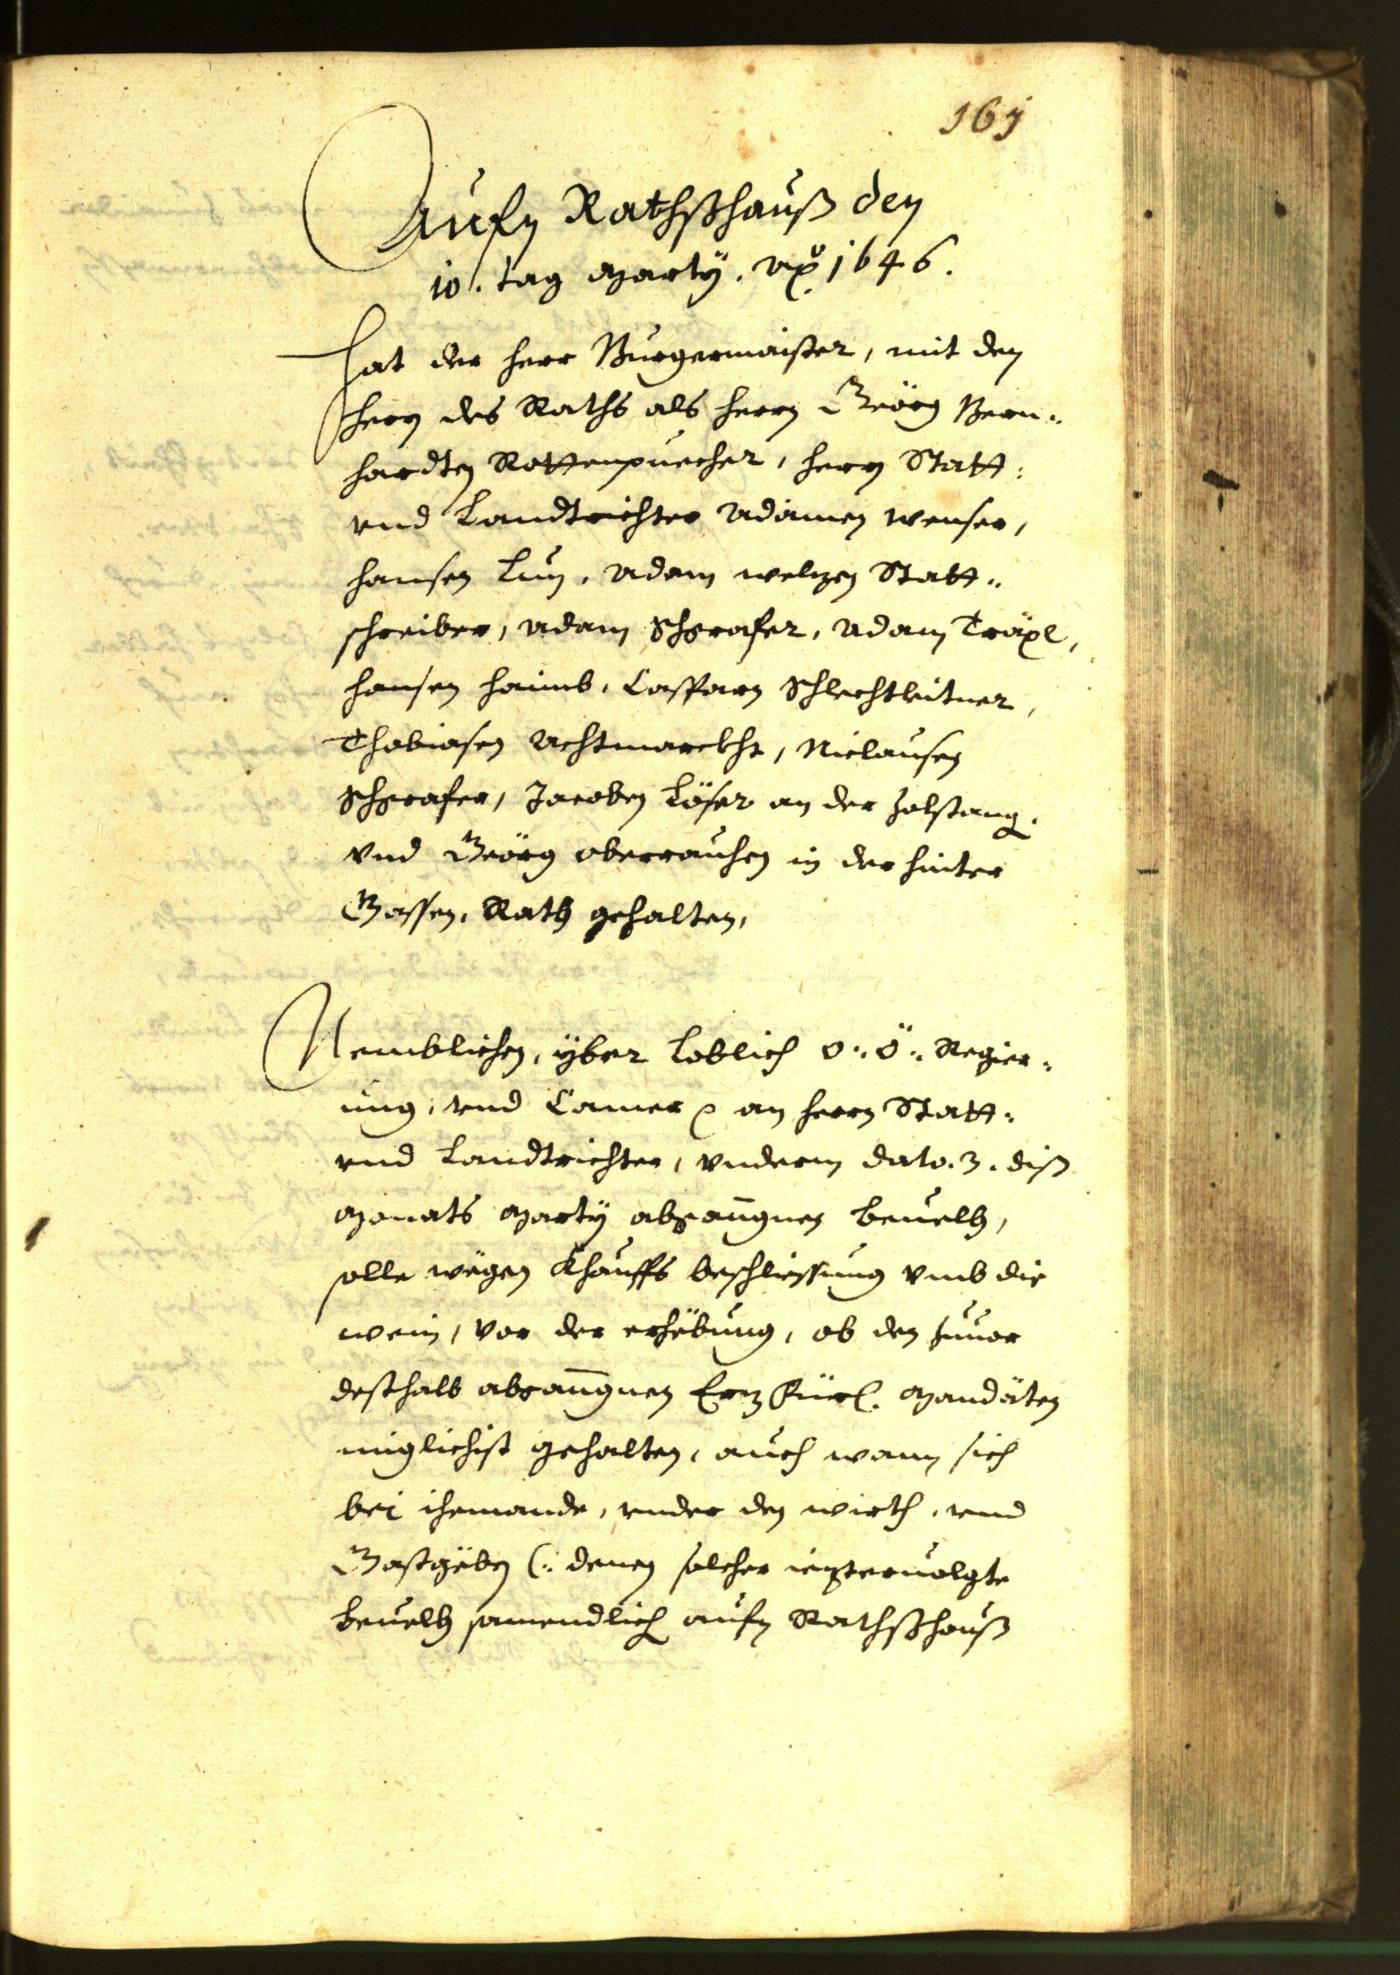 161
Aufn Rathßhauß den
10. tag Marty. Aõ. 1646.
Hat der herr Burgermaister, mit den
herrn des Raths als herrn Geörg Bern-
hardten Rottenpuecher, herrn Statt-
vnd Landtrichter Adamen Wenser,
hansen Lun, Adam Welzen Statt-
schreiber, Adam Schgrafer, Adam Träxl,
hansen haimb, Casparn Schlechtleitner,
Thobiasen Achtmarckht, Niclausen
Schgrafer, Jacoben Löser an der Zolstang,
vnd Geörg oberrauchen in der hinter
Gassen, Rath gehalten,
Nemblichen, yber Loblich O: Ö: Regier-
ung, vnd Camer an herrn Statt-
vnd Landtrichter, vnderm dato. 3. diß
Monats Marty abganngnen beuelh,
solle wegen Khauffs beschliessung vmb die
wein, vor der erhebung, ob den zuuor
desthalb abganngnen Erz Fürl. Mandäten
miglichist gehalten, auch wann sich
bei ihemande, vnder den wirth, vnd
Gastgeben (: denen solcher ieztervolgte
beuelh samendlich aufn Rathßhauß